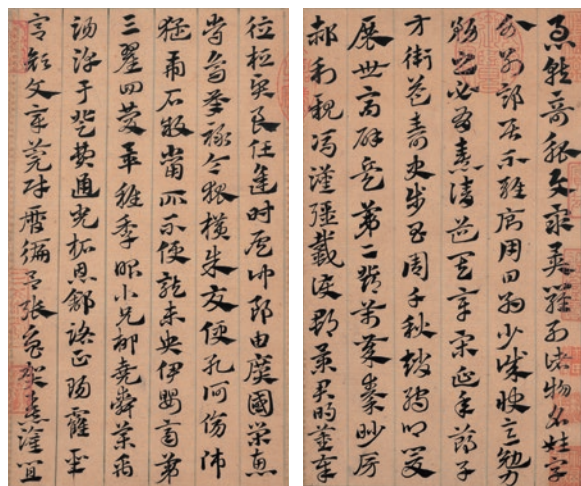 急就奇觚與衆異羅列諸物名姓字
分別部居不雜廁用日約少誠快意勉力
務之必有憙請道其章宋延年鄭子
方衛益壽史步昌周千秋趙孺卿爰
展世高辟兵第二鄧萬歲秦眇房
郝利親馮漢彊戴護郡景君明董奉
德桓賢良任逢時侯仲郎由廣國榮惠
常烏承祿令狐橫朱交便孔何傷師
猛虎石敢當所不侵龍未央伊嬰齊第
三翟回慶畢稚季昭小兄柳堯舜藥禹
湯淳于登費通光柘恩舒路正陽霍聖
宮顏文章莞財歷偏呂張魚賀憙灌宜